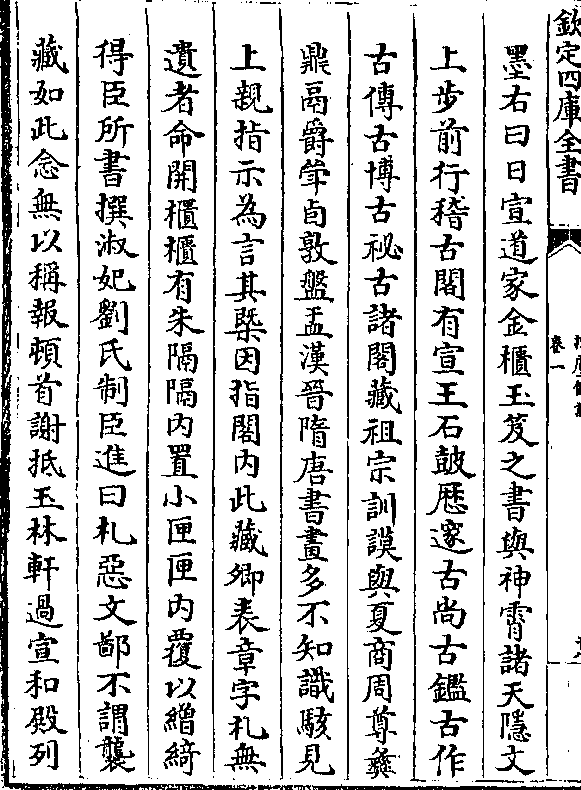 欽定四庫全書
卷一
墨右曰日宣道家金櫃玉笈之書與神霄諸天隱文
上步前行稽古閣有宣王石皷歴邃古尚古鑑古作
古傳古博古祕古諸閣藏祖宗訓謨與夏商周尊彝
鼎鬲爵斝卣敦盤盂漢晉隋唐書畫多不知識駭見
上親指示為言其槩因指閣内此藏卿表章字札無
遺者命開櫃櫃有朱隔隔内置小匣匣内覆以繒綺
得臣所書撰淑妃劉氏制臣進曰札惡文鄙不謂襲
藏如此念無以稱報頓首謝抵玉林軒過宣和殿列